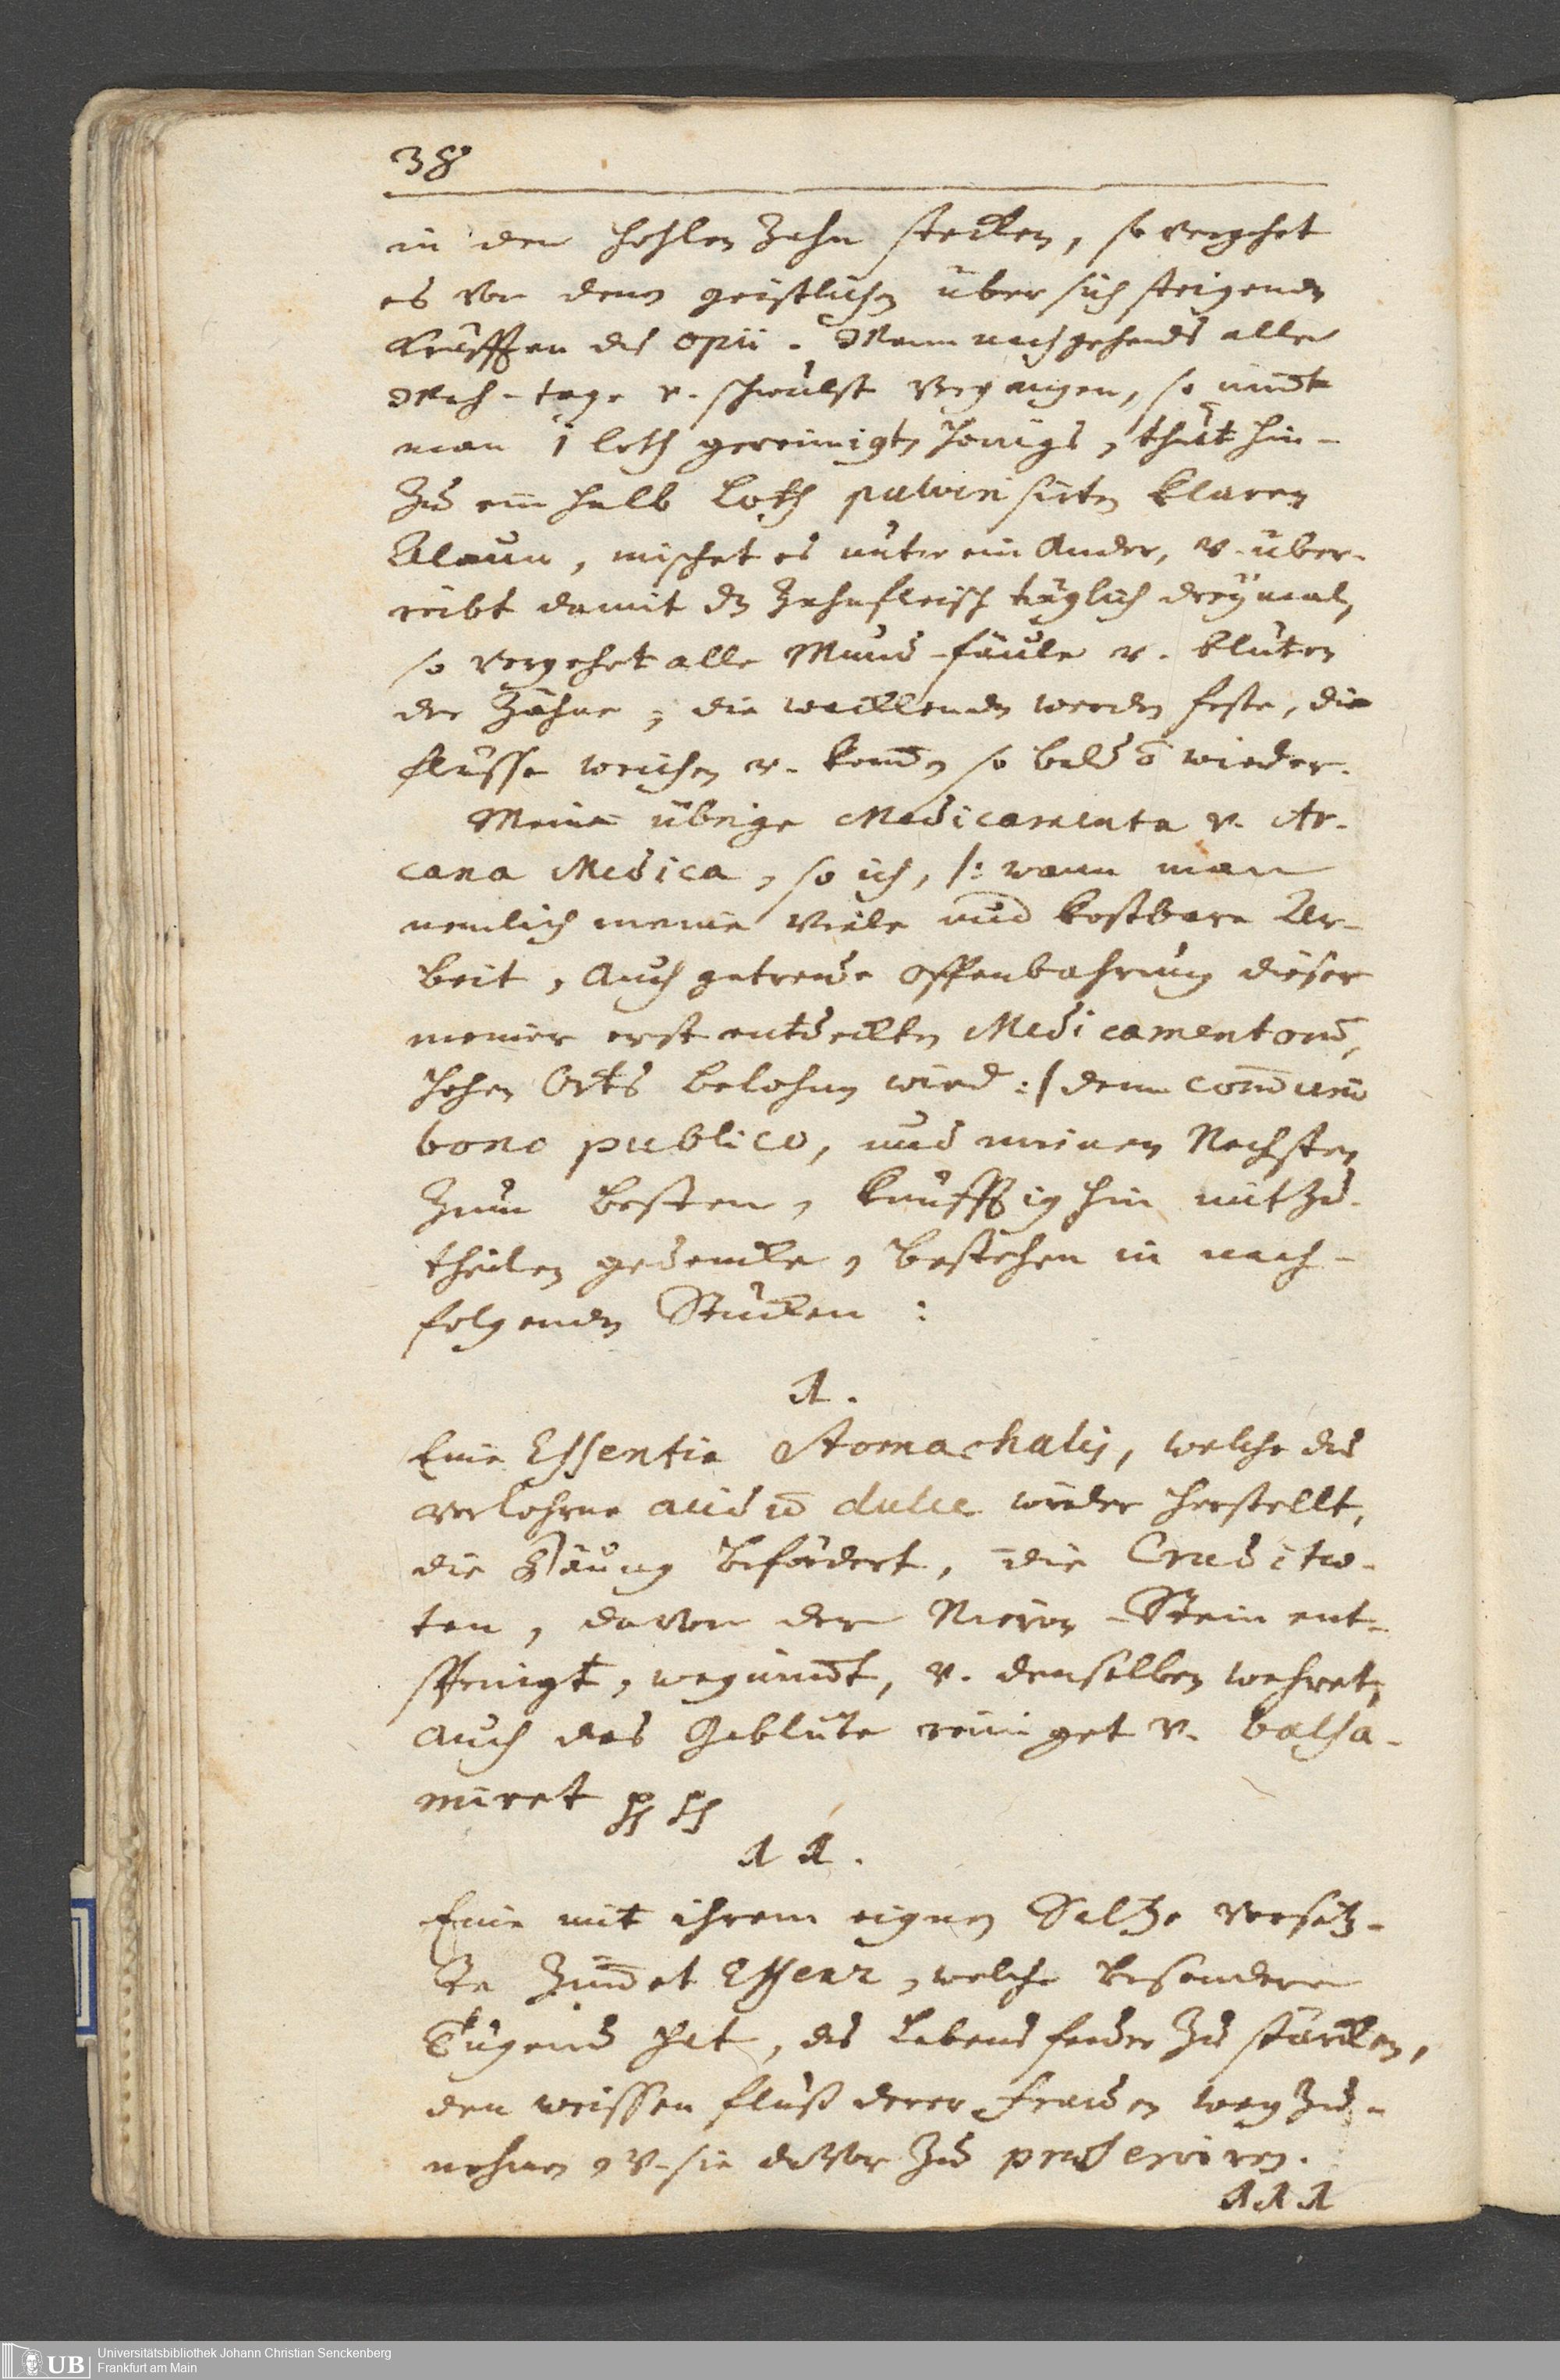 38
in den hohlen Zahn stecken, so vergehet
es von denen geistlichen über sich steigenden
Kräfften des opii. Wann nachgehends alle
Weh-tage v. schwulst vergangen, so nim̅t
man 1 loth gereinigten Honigs, thut hin-
zu ein halb Loth pulverisirten klaren
Alaun, mischet es unter ein Ander, v. über-
reibt damit dz Zahnfleisch täglich dreymal,
so vergehet alle Mund-fäule v. bluten
der Zähne, die wacklenden werden feste, die
flüsse weichen v. kom̅en so bald o̅ wieder.
Meine übrige Medicamenta v. Ar-
cana Medica, so ich, /: wann man
nemlich meine viele und kostbare Ar-
beit, Auch getreue offenbahrung dieser
meiner erst entdeckten Medicamenten,
hohen Orts belohnen wird :/ dem com̅uni
bono publico, und meinen Nechsten
zum besten, künfftighin mitzu-
theilen gedencke, bestehen in nach-
folgenden Stücken :
1.
Eine Essentia Stomachalis, welche das
verlohrne acidum dulce wieder herstellt,
die Däuung befördert, die Crudite-
ten, davon der Nieren-Stein ent-
springt, wegnim̅t, v. denselben wehret,
auch das Geblüte reiniget v. balsa-
miret
11.
Eine mit ihrem eignen Saltze versetz-
te Zim̅et Essenz, welche besondere
Tugend hat, das Lebens feuer zu stärcken,
den weissen fluß derer Frauen weg zu-
nehmen, v. sie davor zu præserviren.
111
Universitätsbibliothek Johann Christian Senckenberg
Frankfurt am Main
UB